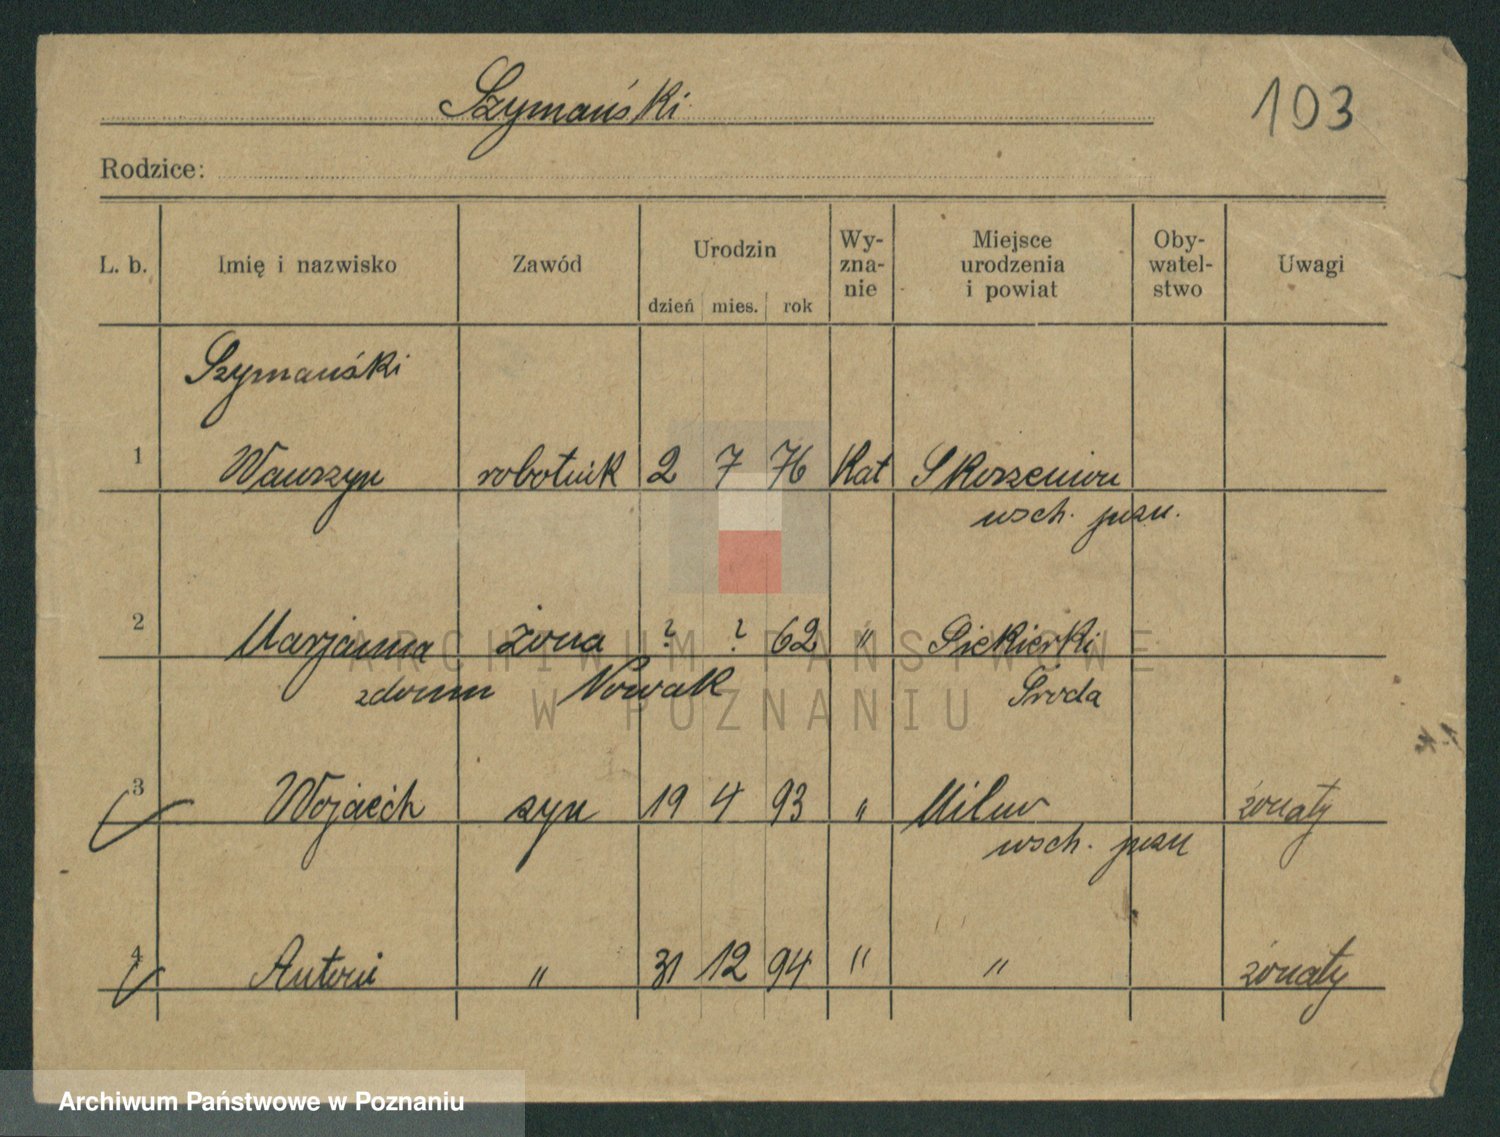 Szymański
103
Rodzice:
L. b. Imię i nazwisko Zawód Urodzin dzień mies. rok Wy-zna-nie Miejsce urodzenia i powiat Oby-watel-stwo Uwagi
Szymański
1 Wawrzyn robotnik 2 7 76 Kat
wsch. pozn.
2 Marjanna żona ? ? 62 " Siekierki
zdomu Nowak Środa
3 Wojciech syn 19 4 93 " żonaty
wsch. pozn
4 Antoni " 31 12 94 " " żonaty
ARCHIWUM PAŃSTWOWE
W POZNANIU
Archiwum Państwowe w Poznaniu